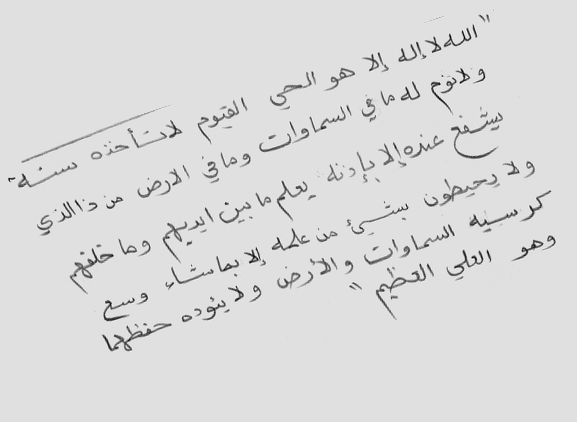 "الله لا إله إلا هو الحي القيوم لا تأخذه سنة
ولا نوم له ما في السماوات وما في الارض من ذا الذي
يشفع عنده إلا بإذنه يعلم ما بين ايديهم وما خلفهم
ولا يحيطون بشيئ من علمه إلا بما شاء وسع
كرسيه السماوات والأرض ولا يئوده حفظهما
وهو العلي العظيم"